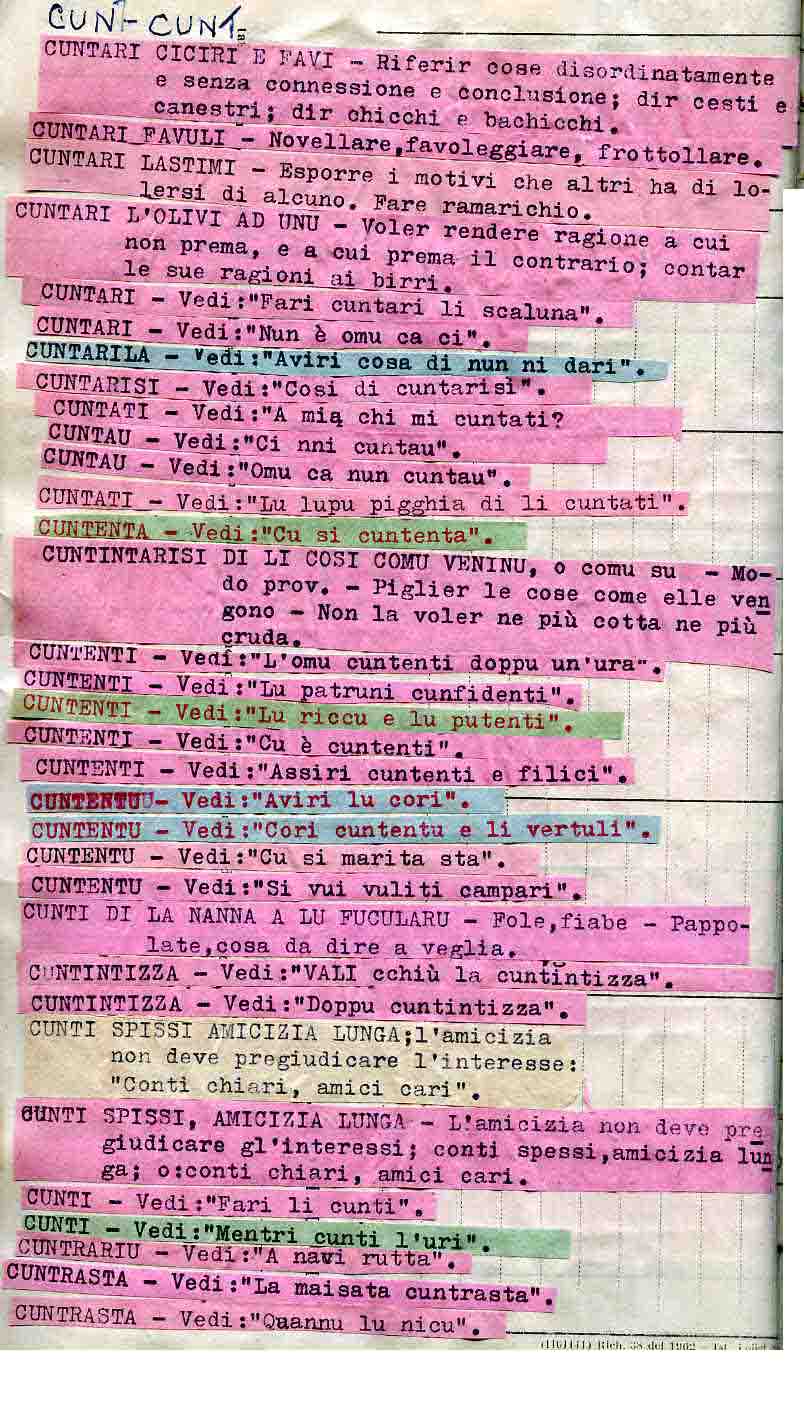 CUNT- CUNT=
CUNTARI CICIRI E FAVI - Riferir cose disordinatamente
e senza connessione e conclusione; dir cesti e
canestri; dir chicchi e bachicchi.
CUNTARI FAVULI - Novellare,favoleggiare, frottollare.
CUNTARI LASTIMI - Esporre i motivi che altri ha di lo-
lersi di alcuno. Fare ramarichio.
CUNTARI L'OLIVI AD UNU - Voler rendere ragione a cui
non prema, e a cui prema il contrario; contar
le sue ragioni ai birri.
CUNTARI - Vedi:"Fari cuntari li scaluna".
CUNTARI - Vedi:"Nun è omu ca ci".
CUNTARILA - Vedi:"Aviri cosa di nun ni dari".
CUNTARISI - Vedi:"Cosi di cuntarisi".
CUNTATI - Vedi:"A mia chi mi cuntati?
CUNTAU - Vedi:"Ci nni cuntau".
CUNTAU - Vedi:"Omu ca nun cuntau".
CUNTATI - Vedi:"Lu lupu pigghia di li cuntati".
CUNTENTA - Vedi:"Cu si cuntenta".
CUNTINTARISI DI LI COSI COMU VENINU, o comu su - Mo-
do prov. - Piglier le cose come elle ven
gono - Non la voler ne più cotta ne più
cruda.
CUNTENTI - Vedi:"L'omu cuntenti doppu un'ura".
CUNTENTI - Vedi:"Lu patruni cunfidenti".
CUNTENTI - Vedi:"Lu riccu e lu putenti".
CUNTENTI - Vedi:"Cu è cuntenti".
CUNTENTI - Vedi:"Assiri cuntenti e filici".
CUNTENTU - Vedi:"Aviri lu cori".
CUNTENTU - Vedi:"Cori cuntentu e li vertuli".
CUNTENTU - Vedi:"Cu si marita sta".
CUNTENTU - Vedi:"Si vui vuliti campari".
CUNTI DI LA NANNA A LU FUCULARU - Fole,fiabe - Pappo-
late,cosa da dire a veglia.
CUNTINTIZZA - Vedi:"VALI cchiù la cuntintizza".
CUNTINTIZZA - Vedi:"Doppu cuntintizza".
CUNTI SPISSI AMICIZIA LUNGA;l'amicizia
non deve pregiudicare l'interesse:
"Conti chiari, amici cari".
CUNTI SPISSI, AMICIZIA LUNGA - L'amicizia non deve pre
giudicare gl'interessi; conti spessi,amicizia lun
ga; o:conti chiari, amici cari.
CUNTI - Vedi:"Fari li cunti".
CUNTI - Vedi:"Mentri cunti l'uri".
CUNTRARIU - Vedi:"A navi rutta".
CUNTRASTA - Vedi:"La maisata cuntrasta".
CUNTRASTA - Vedi:"Quannu lu nicu".